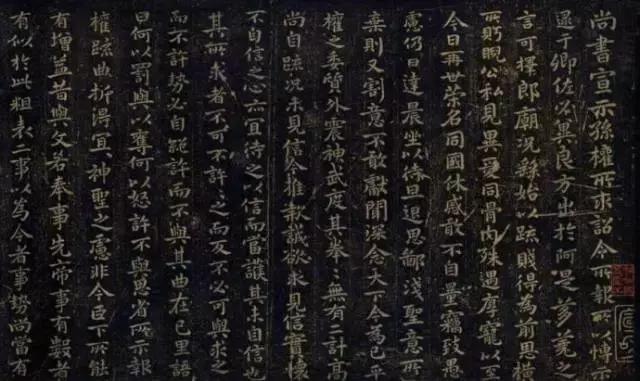 尚書宣示孫權所求詔令所報所以博示
逮于卿佐必冀良方出於阿是芻蕘之
言可擇郎廟況繇始以疏賤得為前思橫
所眄睨公私見異愛同骨肉殊遇厚寵以至
今日再世榮名同國休慼敢不自量竊致愚
慮仍日達晨坐以待旦退思鄙淺聖意所
棄則又割意不敢獻聞深念天下今為已平
權之委質外震神武度其拳〻無有二計高
尚自疏況未見信今推款誠欲求見信實懷
不自信之心亦宜待之以信而當護其未自信也
其所求者不可不許〻之而反不必可與求之
而不許勢必自絕許而不與其曲在己里語
曰何以罰與以奪何以怒許不與思省所示報
權疏曲折得宜〻神聖之慮非今臣下所能
有增益昔與文若奉事先帝事有數者
有似於此粗表二事以為今者事勢尚當有